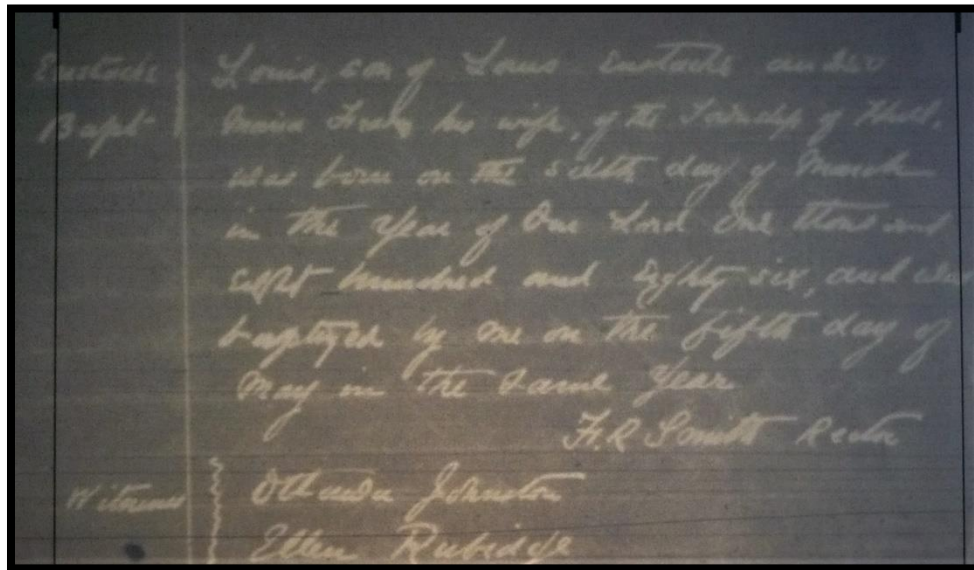 Eustache Louis, son of Louis Eustache and
Bapt. his wife, of the Township of Hull,
was born on the sixth day of March
in the Year of Our Lord One thousand
eight hundred and eighty six, and was
baptized by me on the fifth day of
May in the same Year
F.R. Smith Rector
Witnesses Johnston
Ellen Rubidge